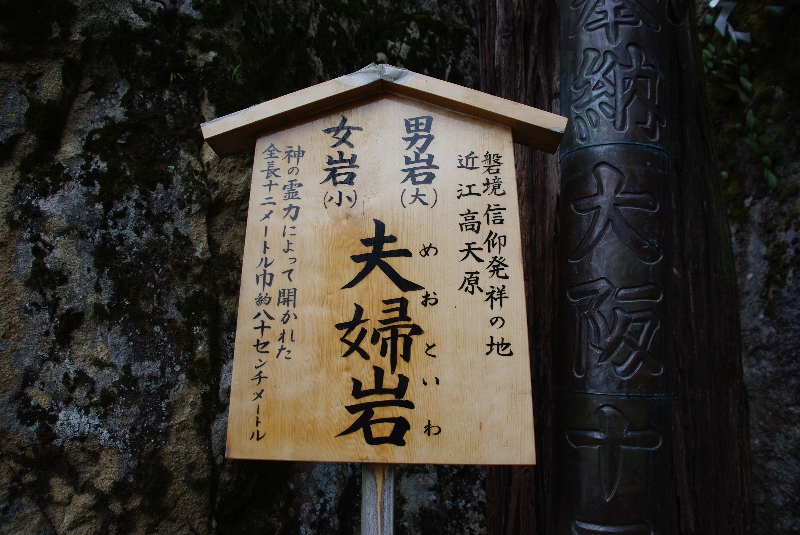 磐境信仰発祥の地
近江高天原
男岩(大)
女岩(小)
めおといわ
夫婦岩
神の霊力によって開かれた
全長十二メートル巾約八十センチメートル
奉納大阪十